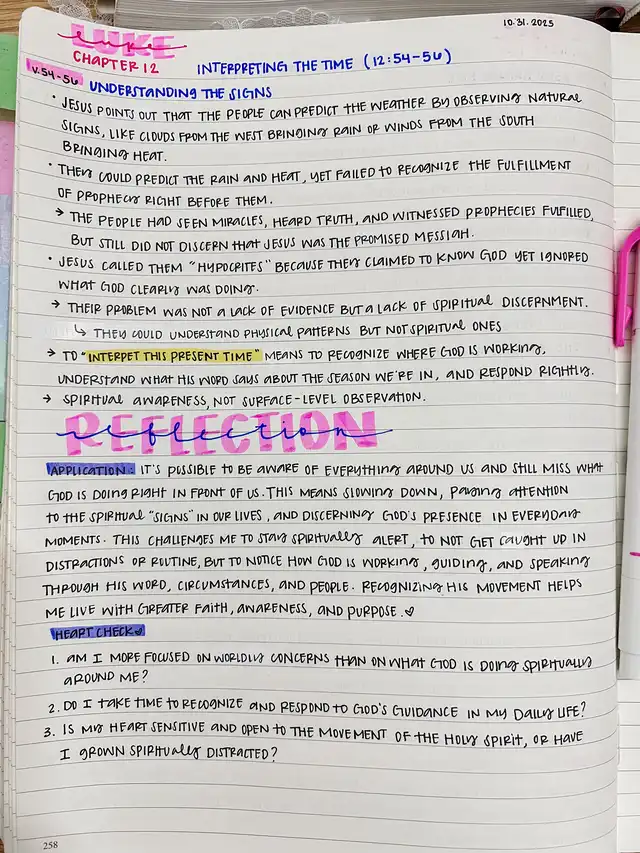 10.31.2025
LUKE
luke
CHAPTER 12
INTERPRETING THE TIME (12:54-56)
v.54-56
UNDERSTANDING THE SIGNS
• JESUS POINTS OUT THAT THE PEOPLE CAN PREDICT THE WEATHER BY OBSERVING NATURAL
SIGNS, LIKE CLOUDS FROM THE WEST BRINGING RAIN OR WINDS FROM THE SOUTH
BRINGING HEAT.
• THEY COULD PREDICT THE RAIN AND HEAT, YET FAILED TO RECOGNIZE THE FULFILLMENT
OF PROPHECY RIGHT BEFORE THEM.
→ THE PEOPLE HAD SEEN MIRACLES, HEARD TRUTH, AND WITNESSED PROPHECIES FULFILLED,
BUT STILL DID NOT DISCERN THAT JESUS WAS THE PROMISED MESSIAH.
• JESUS CALLED THEM "HYPOCRITES" BECAUSE THEY CLAIMED TO KNOW GOD YET IGNORED
WHAT GOD CLEARLY WAS DOING.
→ THEIR PROBLEM WAS NOT A LACK OF EVIDENCE BUT A LACK OF SPIRITUAL DISCERNMENT.
↳ THEY COULD UNDERSTAND PHYSICAL PATTERNS BUT NOT SPIRITUAL ONES
→ TO "INTERPET THIS PRESENT TIME" MEANS TO RECOGNIZE WHERE GOD IS WORKING,
UNDERSTAND WHAT HIS WORD SAYS ABOUT THE SEASON WE'RE IN, AND RESPOND RIGHTLY.
→ SPIRITUAL AWARENESS, NOT SURFACE-LEVEL OBSERVATION.
REFLECTION
reflection
APPLICATION: IT'S POSSIBLE TO BE AWARE OF EVERYTHING AROUND US AND STILL MISS WHAT
GOD IS DOING RIGHT IN FRONT OF US. THIS MEANS SLOWING DOWN, PAYING ATTENTION
TO THE SPIRITUAL "SIGNS" IN OUR LIVES, AND DISCERNING GOD'S PRESENCE IN EVERYDAY
MOMENTS. THIS CHALLENGES ME TO STAY SPIRITUALLY ALERT, TO NOT GET CAUGHT UP IN
DISTRACTIONS OR ROUTINE, BUT TO NOTICE HOW GOD IS WORKING, GUIDING, AND SPEAKING
THROUGH HIS WORD, CIRCUMSTANCES, AND PEOPLE. RECOGNIZING HIS MOVEMENT HELPS
ME LIVE WITH GREATER FAITH, AWARENESS, AND PURPOSE.♡
HEART CHECK♡
1. AM I MORE FOCUSED ON WORLDLY CONCERNS THAN ON WHAT GOD IS DOING SPIRITUALLY
AROUND ME?
2. DO I TAKE TIME TO RECOGNIZE AND RESPOND TO GOD'S GUIDANCE IN MY DAILY LIFE?
3. IS MY HEART SENSITIVE AND OPEN TO THE MOVEMENT OF THE HOLY SPIRIT, OR HAVE
I GROWN SPIRITUALLY DISTRACTED?
258